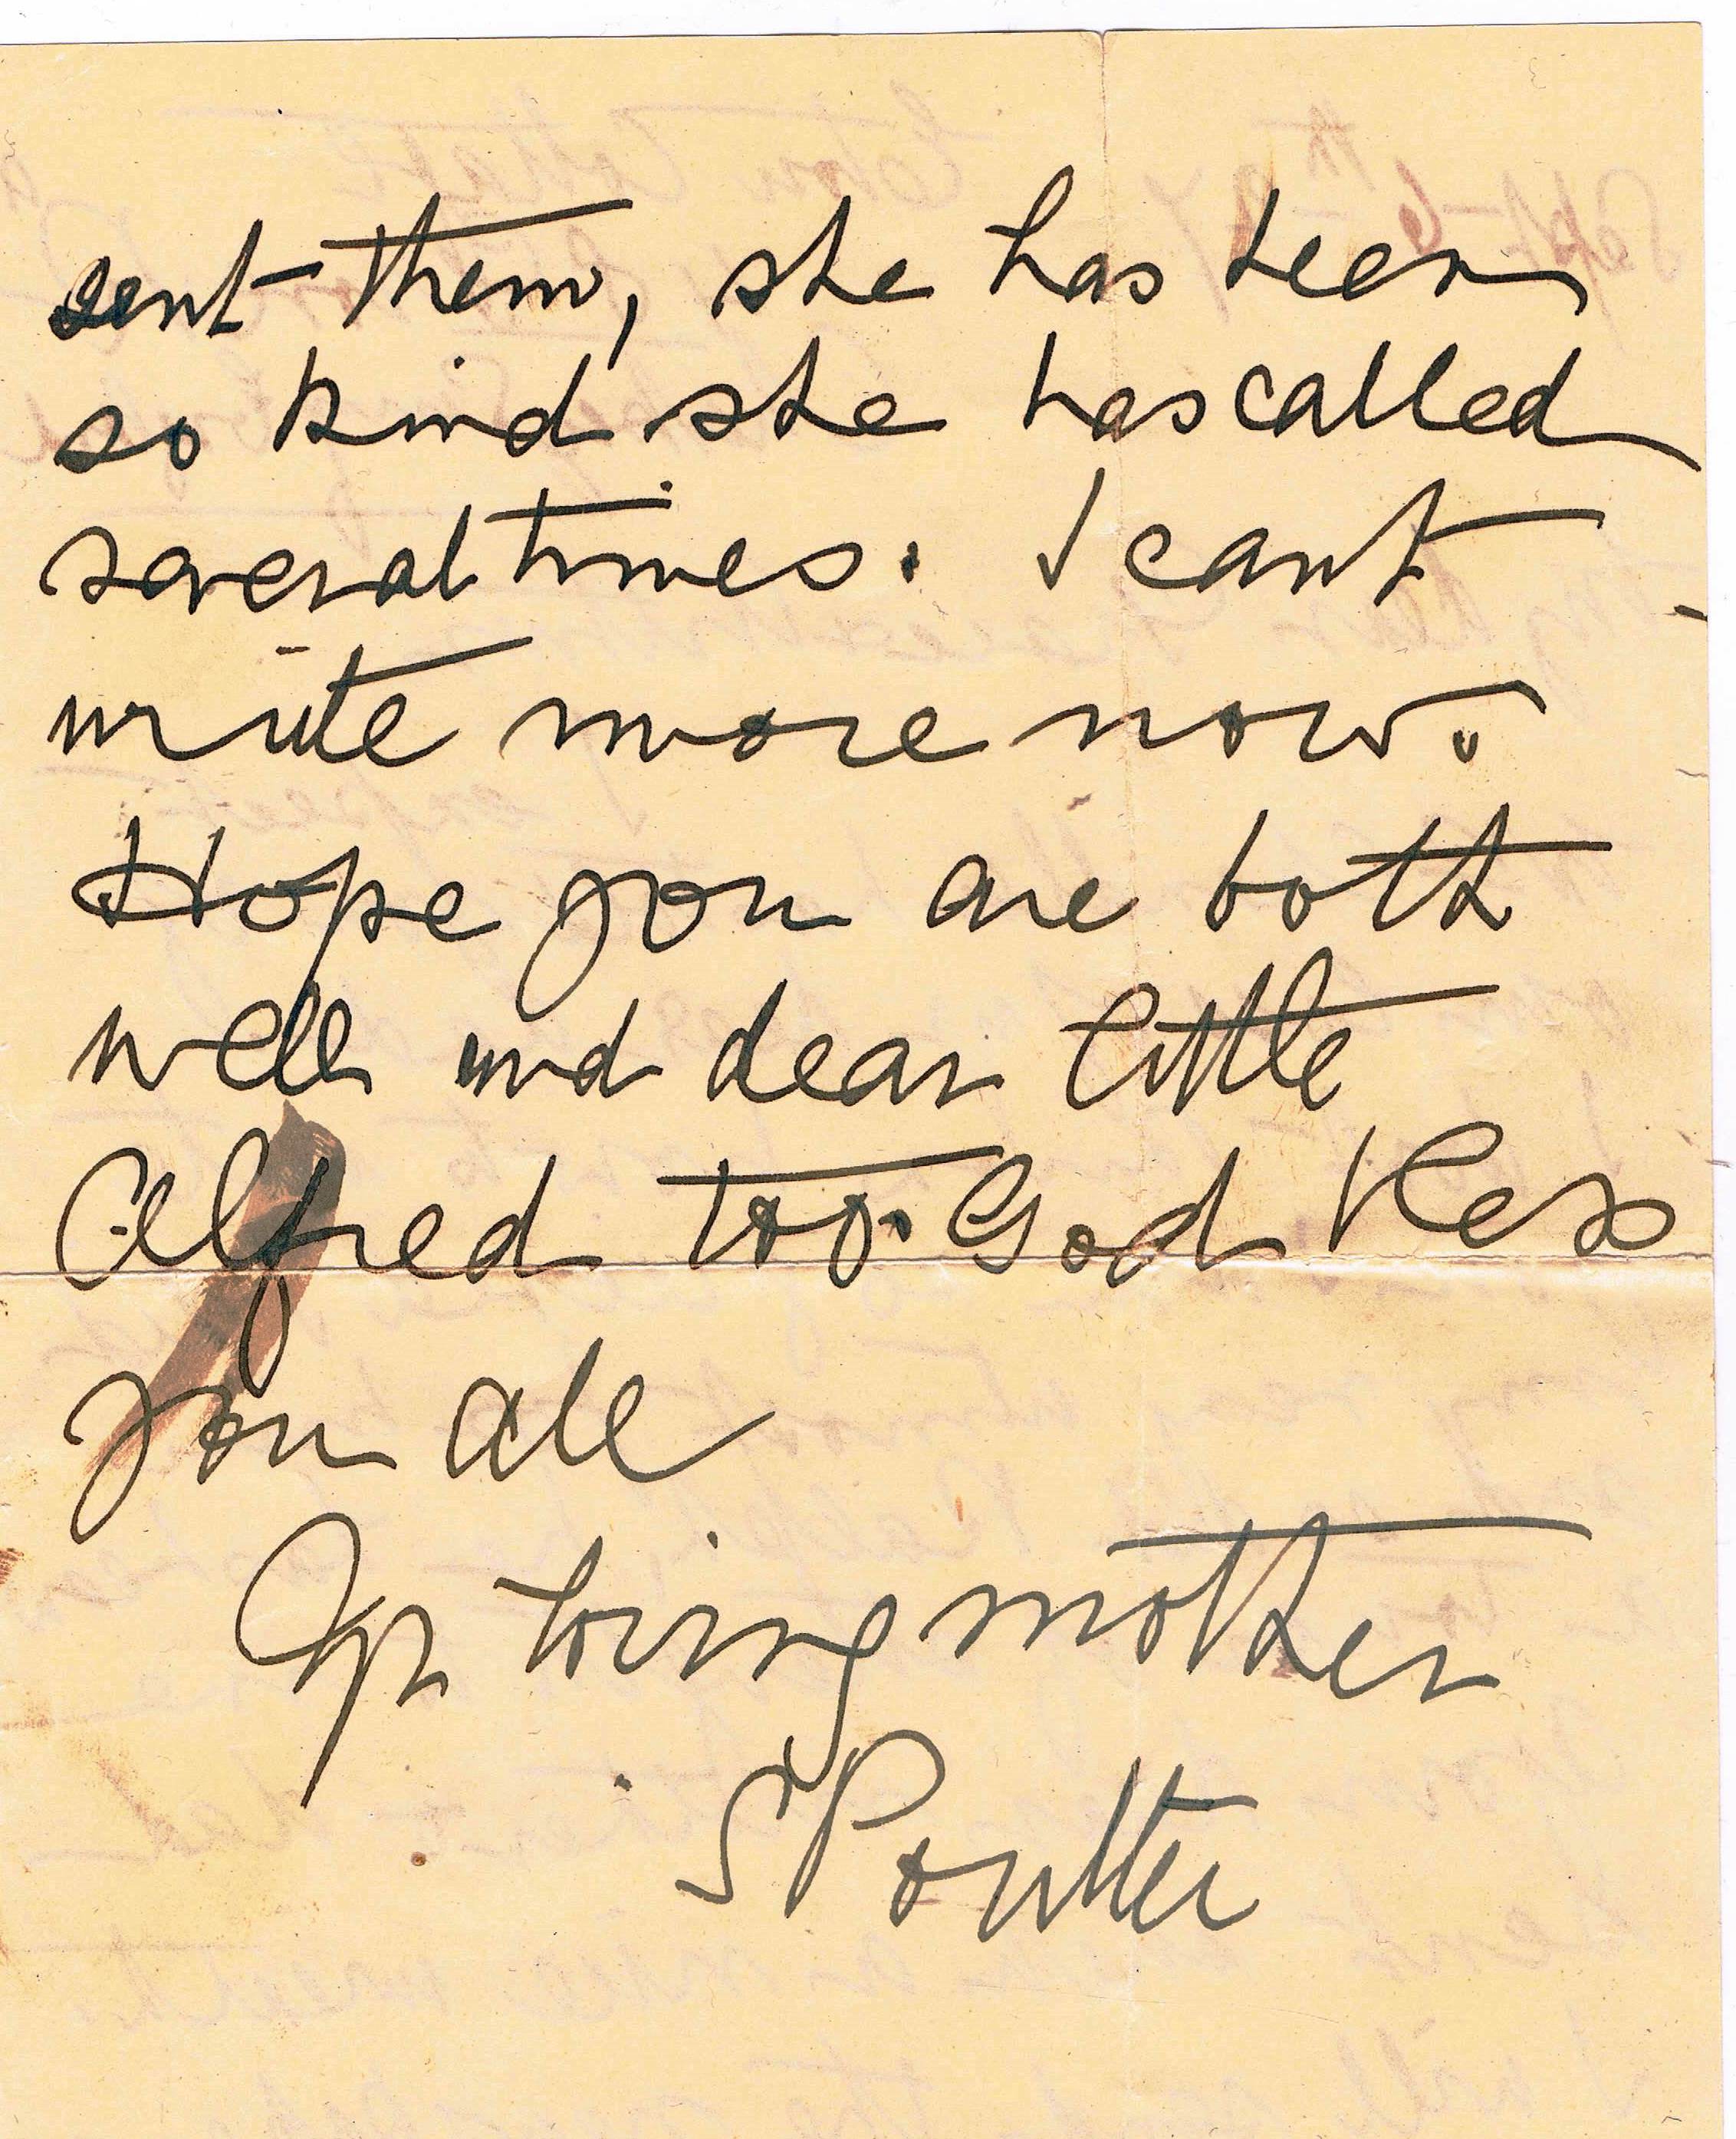 sent them, she has been
so kind she has called
several times. I cant
write more now.
Hope you are both
well and dear little
Alfred too. God bless
you all
Yr loving mother
S Poutter